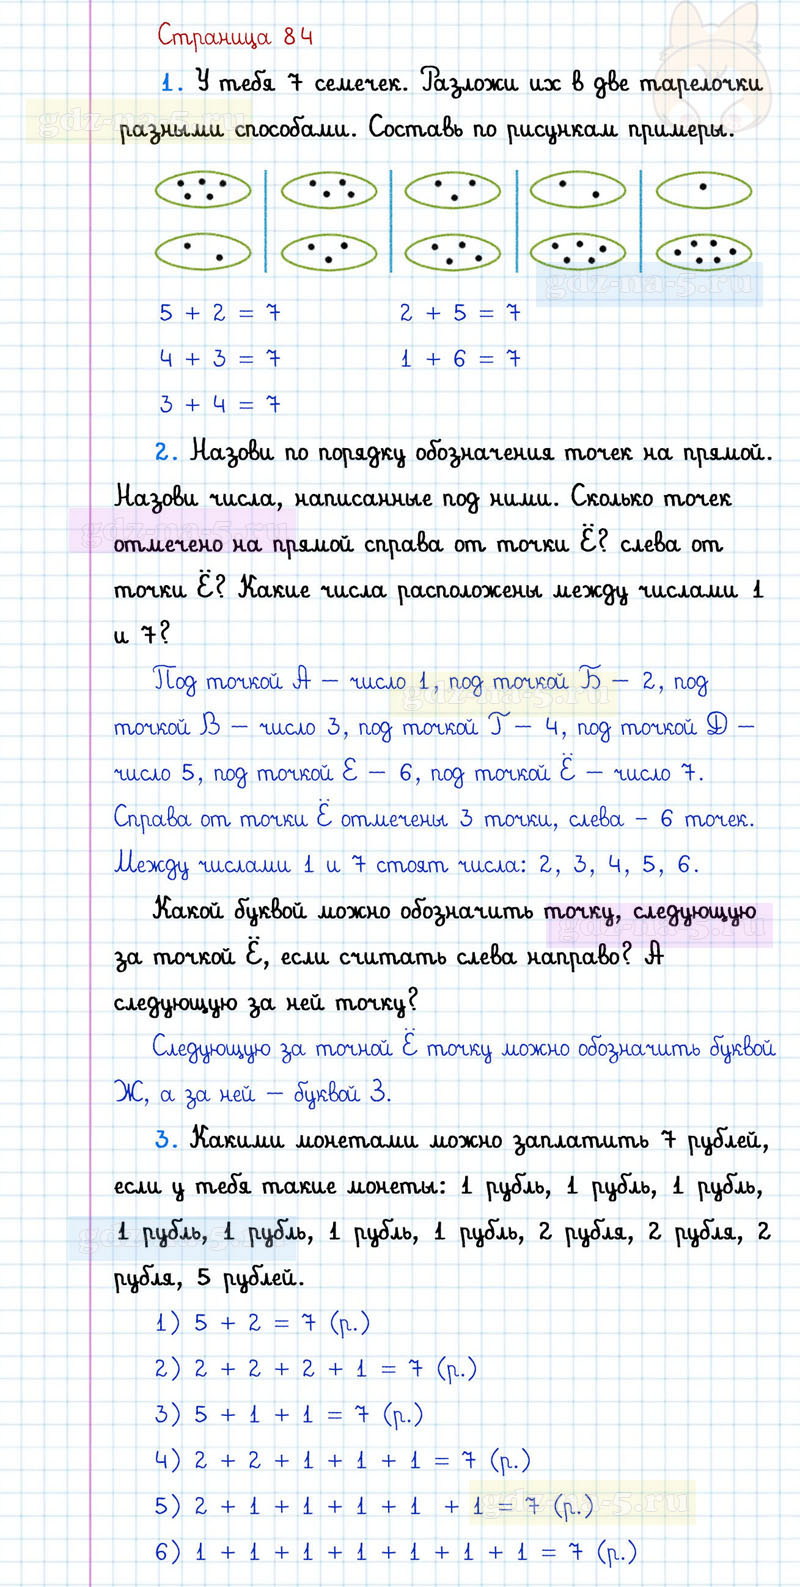 Страница 84
1. У тебя 7 семечек. Разложи их в две тарелочки
gdz-na-5.ru
разными способами. Составь по рисункам примеры.
gdz-na-5.ru
5 + 2 = 7 2 + 5 = 7
4 + 3 = 7 1 + 6 = 7
3 + 4 = 7
2. Назови по порядку обозначения точек на прямой.
Назови числа, написанные под ними. Сколько точек
gdz-na-5.ru
отмечено на прямой справа от точки Ё? слева от
точки Ё? Какие числа расположены между числами 1
и 7?
Под точкой А – число 1, под точкой Б – 2, под
gdz-na-5.ru
точкой В – число 3, под точкой Г – 4, под точкой Д –
число 5, под точкой Е – 6, под точкой Ё – число 7.
Справа от точки Ё отмечены 3 точки, слева – 6 точек.
Между числами 1 и 7 стоят числа: 2, 3, 4, 5, 6.
Какой буквой можно обозначить точку, следующую
gdz-na-5.ru
за точкой Ё, если считать слева направо? А
следующую за ней точку?
Следующую за точной Ё точку можно обозначить буквой
Ж, а за ней – буквой З.
3. Какими монетами можно заплатить 7 рублей,
если у тебя такие монеты: 1 рубль, 1 рубль, 1 рубль,
1 рубль, 1 рубль, 1 рубль, 1 рубль, 2 рубля, 2 рубля, 2
gdz-na-5.ru
рубля, 5 рублей.
1) 5 + 2 = 7 (р.)
2) 2 + 2 + 2 + 1 = 7 (р.)
3) 5 + 1 + 1 = 7 (р.)
4) 2 + 2 + 1 + 1 + 1 = 7 (р.)
5) 2 + 1 + 1 + 1 + 1 + 1 = 7 (р.)
gdz-na-5.ru
6) 1 + 1 + 1 + 1 + 1 + 1 + 1 = 7 (р.)